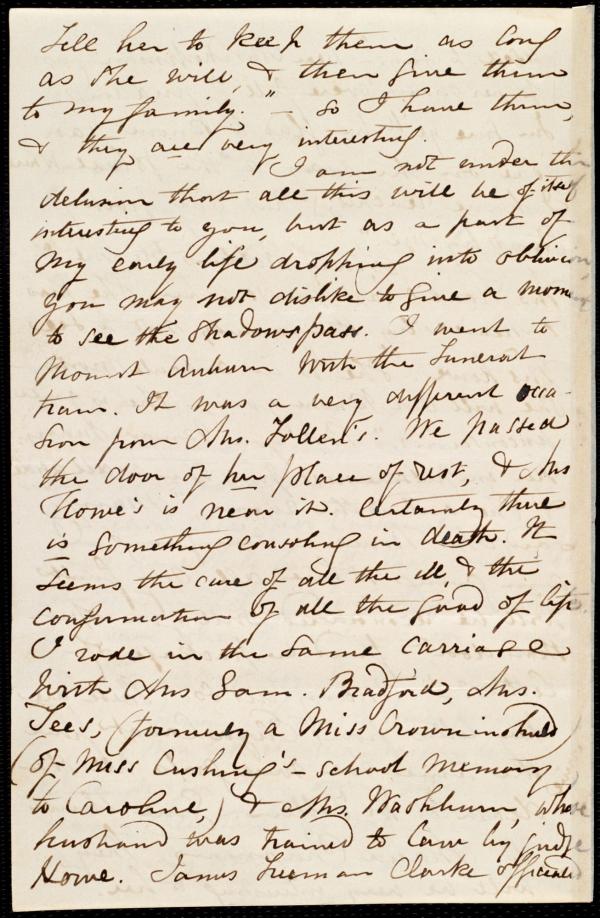 Tell her to keep them as long
as she will, & then give them
to my family." – So I have them,
& they are very interesting.
I am not under the
delusion that all this will be of itself
interesting to you, but as a part of
my early life dropping into oblivion
you may not dislike to give a moment
to see the shadows pass. I went to
Mount Auburn with the funeral
train. It was a very different occa-
sion from Mrs. Follen's. We passed
the door of her place of rest, & Mrs
Howe's is near it. Certainly there
is something consoling in death. It
seems the cure of all the ill, & the
confirmation of all the good of life.
I rode in the same carriage
with Mrs Sam. Bradford, Mrs.
Lees, (formerly a Miss Crowninshield)
(of Miss Cushing's – school memory
to Caroline,) & Mrs. Washburn, whose
husband was trained to law by Judge
Howe. James Freeman Clarke officiated